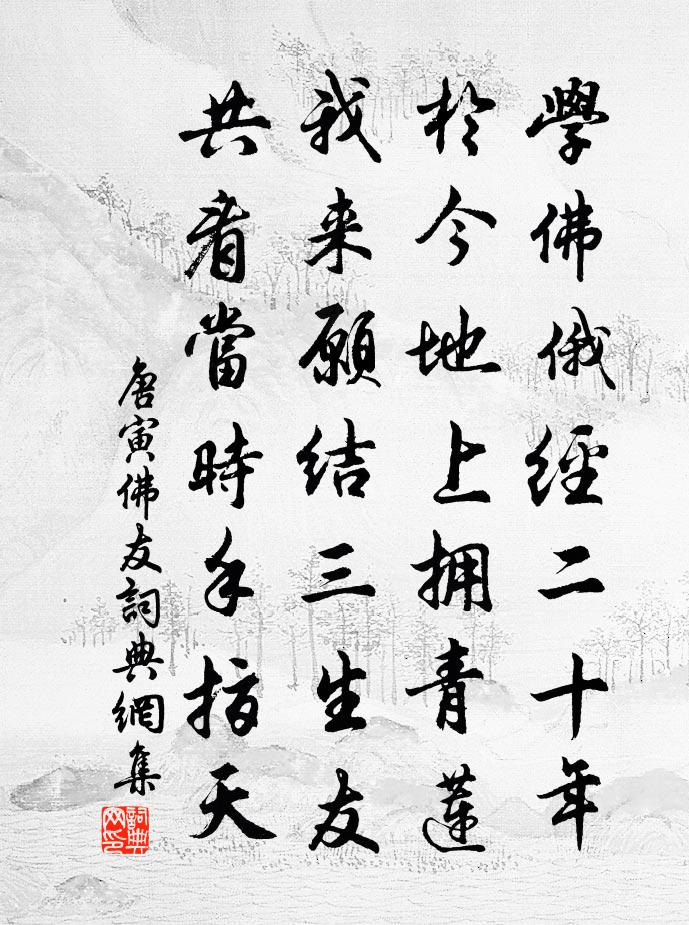 學佛俄經二十年
於今地上拥青蓮
我来願結三生友
共看當時手指天
唐寅佛友詞典網集
詞典網印